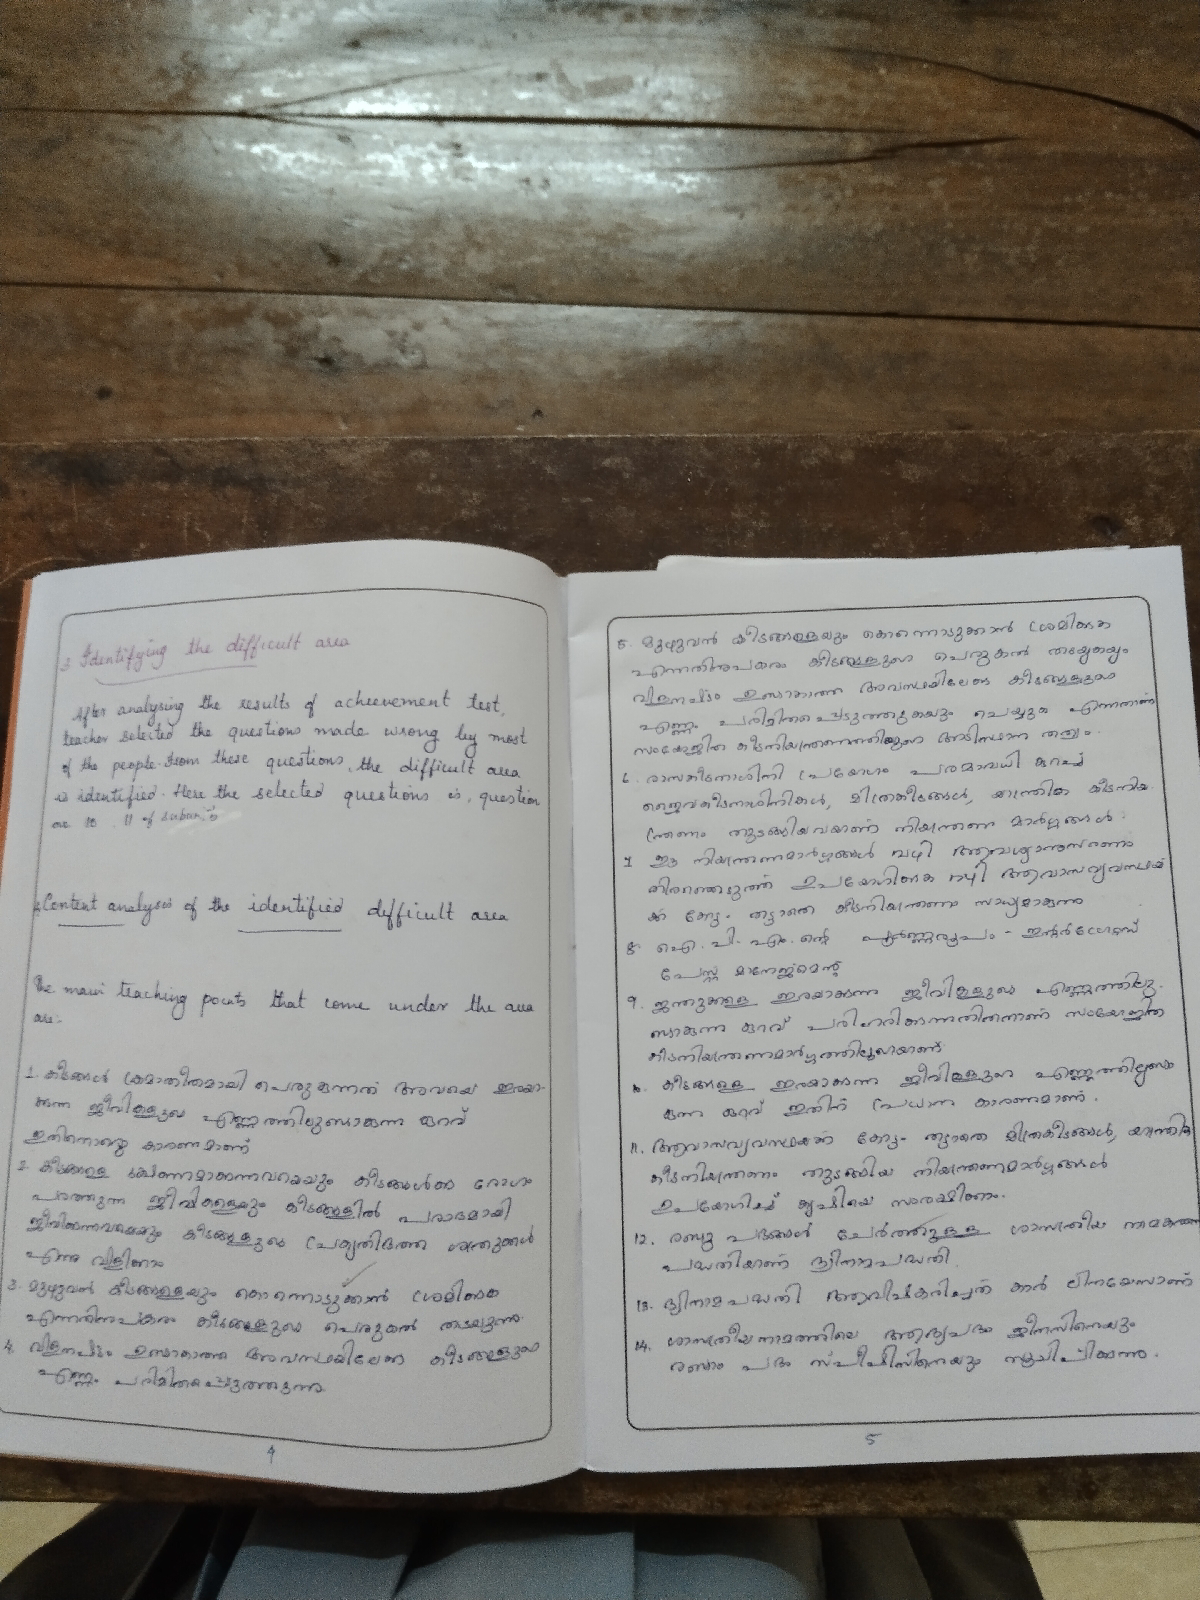 3. Identifying the difficult area
After analysing the results of achievement test,
teacher selected the questions made wrong by most
of the people. From these questions, the difficult area
is identified. Here the selected questions is, question
no 10, 11 of
Content analysis of the identified difficult area
The main teaching points that come under the area
are:-
1. കീടങ്ങൾ ക്രമാതീതമായി പെരുകുന്നത് അവയെ ഇരയാ-
ക്കുന്ന ജീവികളുടെ എണ്ണത്തിലുണ്ടാകുന്ന കുറവ്
ഇതിനൊരു കാരണമാണ്
2. കീടങ്ങളെ ഭക്ഷണമാക്കുന്നവയെയും കീടങ്ങൾക്ക് രോഗം
പരത്തുന്ന ജീവികളെയും കീടങ്ങളിൽ പരാദമായി
ജീവിക്കുന്നവയെയും കീടങ്ങളുടെ പ്രകൃതിദത്ത ശത്രുക്കൾ
എന്നു വിളിക്കാം
3. മുഴുവൻ കീടങ്ങളെയും കൊന്നൊടുക്കാൻ ശ്രമിക്കുക
എന്നതിനുപകരം കീടങ്ങളുടെ പെരുകൽ തടയുന്നു
4. വിളനഷ്ടം ഉണ്ടാകാത്ത അവസ്ഥയിലേക്ക് കീടങ്ങളുടെ
എണ്ണം പരിമിതപ്പെടുത്തുന്നു
4
5. മുഴുവൻ കീടങ്ങളെയും കൊന്നൊടുക്കാൻ ശ്രമിക്കുക
എന്നതിനുപകരം കീടങ്ങളുടെ പെരുകൽ തടയുകയും
വിളനഷ്ടം ഉണ്ടാകാത്ത അവസ്ഥയിലേക്ക് കീടങ്ങളുടെ
എണ്ണം പരിമിതപ്പെടുത്തുകയും ചെയ്യുക എന്നതാണ്
സംയോജിത കീടനിയന്ത്രണത്തിന്റെ അടിസ്ഥാന തത്വം.
6. രാസകീടനാശിനി പ്രയോഗം പരമാവധി കുറച്ച്
ജൈവകീടനാശിനികൾ, മിത്രകീടങ്ങൾ, യാന്ത്രിക കീടനിയ-
ന്ത്രണം തുടങ്ങിയവയാണ് നിയന്ത്രണ മാർഗ്ഗങ്ങൾ.
7. ഈ നിയന്ത്രണമാർഗ്ഗങ്ങൾ വഴി ആവശ്യാനുസരണം
തിരഞ്ഞെടുത്ത് ഉപയോഗിക്കുക വഴി ആവാസവ്യവസ്ഥയ്
ക്ക് കോട്ടം തട്ടാതെ കീടനിയന്ത്രണം സാധ്യമാകുന്നു
8. ഐ.പി.എം.ന്റെ പൂർണ്ണരൂപം - ഇന്റഗ്രേറ്റഡ്
പേസ്റ്റ് മാനേജ്മെന്റ്
9. ജന്തുക്കളെ ഇരയാക്കുന്ന ജീവികളുടെ എണ്ണത്തിലു-
ണ്ടാകുന്ന കുറവ് പരിഹരിക്കുന്നതിനാണ് സംയോജിത
കീടനിയന്ത്രണമാർഗ്ഗത്തിലൂടെയാണ്
10. കീടങ്ങളെ ഇരയാക്കുന്ന ജീവികളുടെ എണ്ണത്തിലുണ്ടാ
കുന്ന കുറവ് ഇതിന് പ്രധാന കാരണമാണ്.
11. ആവാസവ്യവസ്ഥയ്ക്ക് കോട്ടം തട്ടാതെ മിത്രകീടങ്ങൾ, യാന്ത്രിക
കീടനിയന്ത്രണം തുടങ്ങിയ നിയന്ത്രണമാർഗ്ഗങ്ങൾ
ഉപയോഗിച്ച് കൃഷിയെ സംരക്ഷിക്കാം.
12. രണ്ടു പദങ്ങൾ ചേർത്തുള്ള ശാസ്ത്രീയ നാമകരണ
പദ്ധതിയാണ് ദ്വിനാമപദ്ധതി.
13. ദ്വിനാമപദ്ധതി ആവിഷ്കരിച്ചത് കാൾ ലിനേയസാണ്
14. ശാസ്ത്രീയനാമത്തിലെ ആദ്യപദം ജീനസിനെയും
രണ്ടാം പദം സ്പീഷിസിനെയും സൂചിപ്പിക്കുന്നു.
5